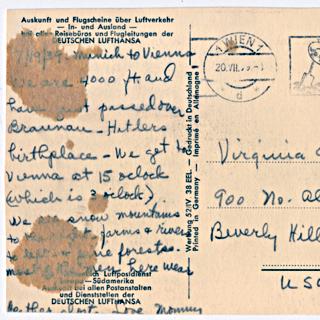 Auskunft und Flugscheine über Luftverkehr
— In- und Ausland —
bei allen Reisebüros und Flugleitungen der
DEUTSCHEN LUFTHANSA
7/19/39. Munich to Vienna
We are 4000 ft and
have just passed over
Braunau - Hitlers
birthplace - We get to
Vienna at 15 oclock
(which is 3 oclock)
We see snow mountains
to the right, farms & rivers
to left & pine forests.
most of the men here wear
Luftpostdienst
Europa—Südamerika
Auskunft bei allen Postanstalten
und Dienststellen der
DEUTSCHEN LUFTHANSA
Love Mommy
Werbung 57/IV. 38 EEL. - Gedruckt in Deutschland
Printed in Germany — Imprimé en Allemagne
WIEN 1
20.VII.
d
Virginia
900 No. Al
Beverly Hill
USA